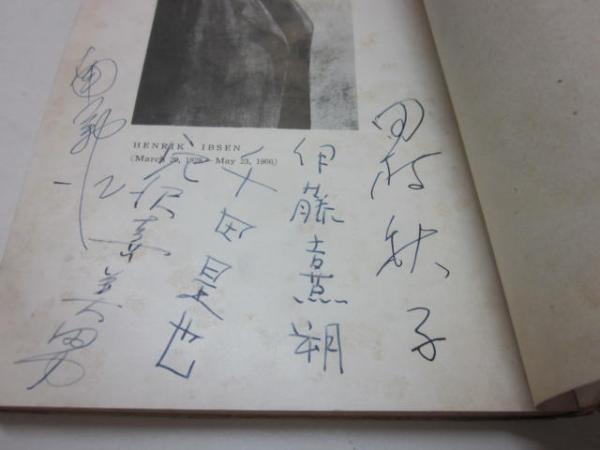 HENRIK IBSEN
(March 20, 1828 - May 23, 1906)
田村秋子
伊藤熹朔
千田是也
穴沢喜美男